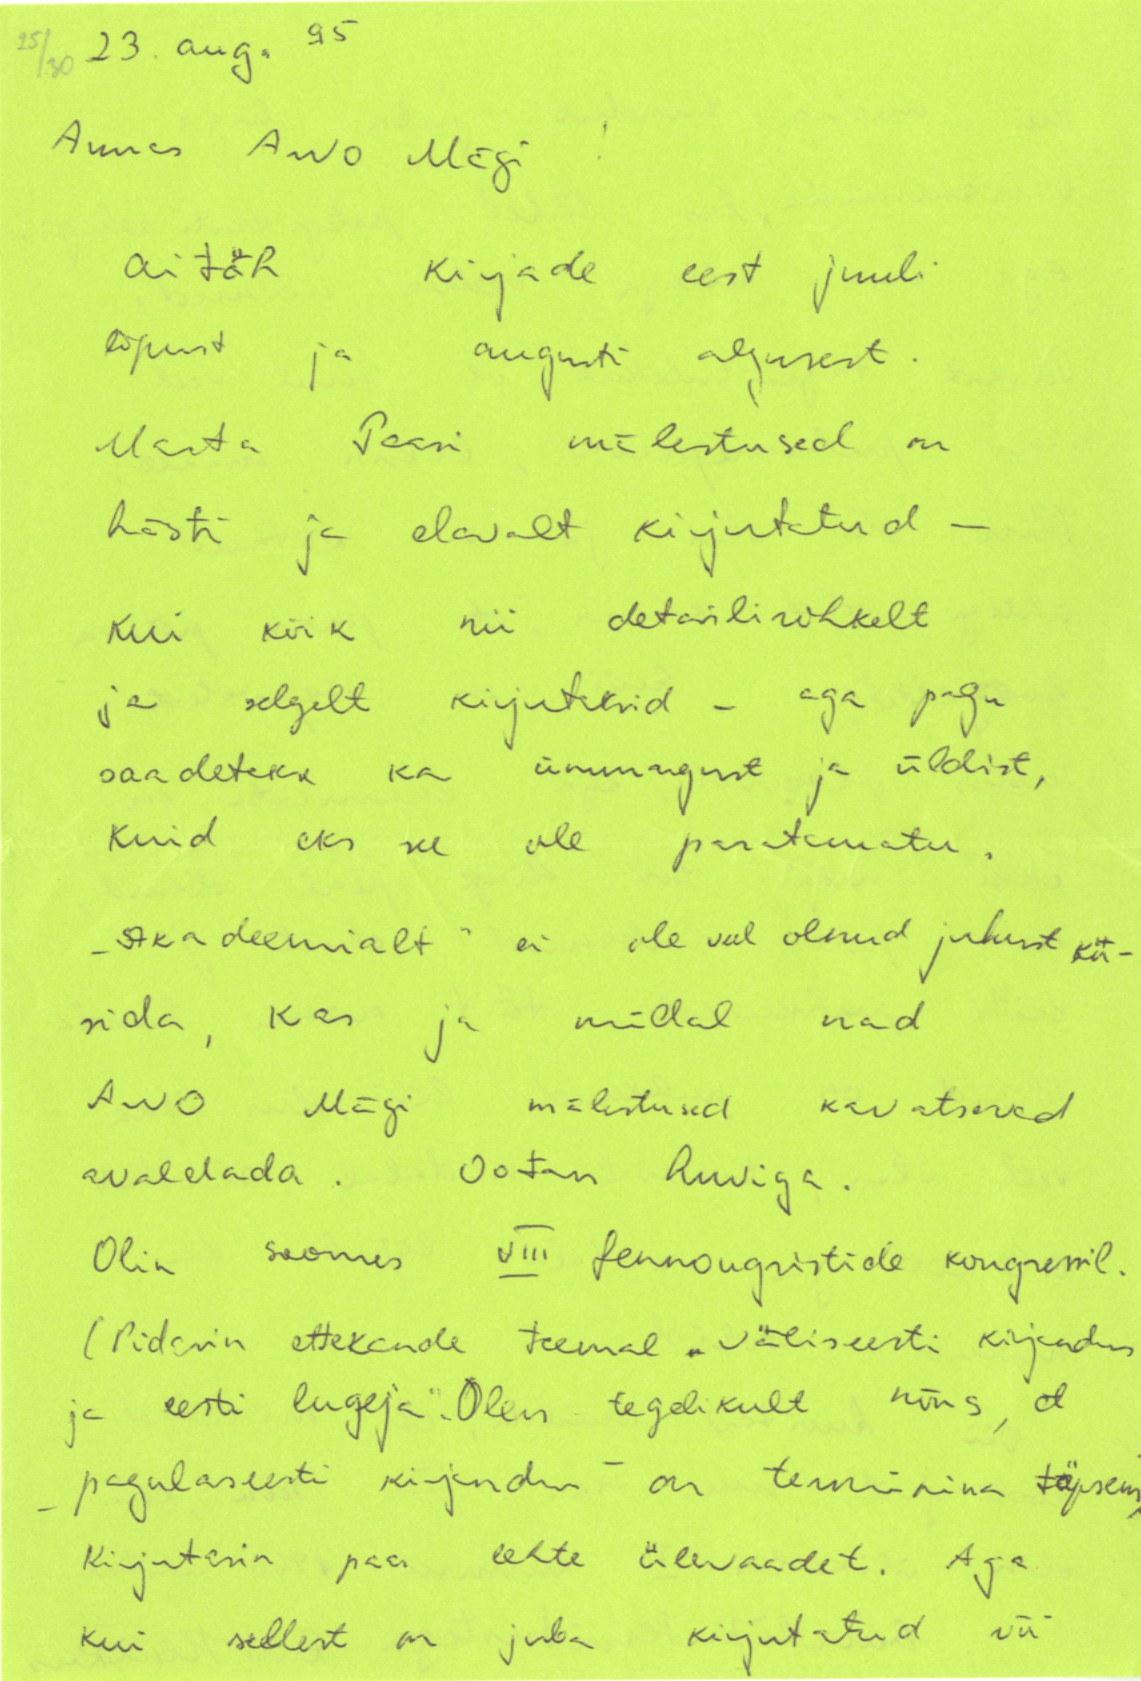 25/30 23. aug. 95
Armas Arvo Mägi!
Aitäh kirjade eest juuli
lõpust ja augusti algusest.
Marta mälestused on
hästi ja elavalt kirjutatud –
kui kõik nii detailirohkelt
ja selgelt kirjutaksid – aga palju
saadetakse ka ümmargust ja üldist,
kuid eks see ole paratamatu.
„Akadeemialt" ei ole veel olnud juhust kü-
sida, kas ja millal nad
Arvo Mägi mälestused kavatsevad
avaldada. Ootan huviga.
Olin Soomes VIII fennougristide kongressil.
(Pidasin ettekande teemal „Väliseesti kirjandus
ja eesti lugeja". Olen tegelikult nõus, et
„pagulaseesti kirjandus" on terminina täpsem,
Kirjutasin paar lehte ülevaadet. Aga
kui sellest on juba kirjutatud või